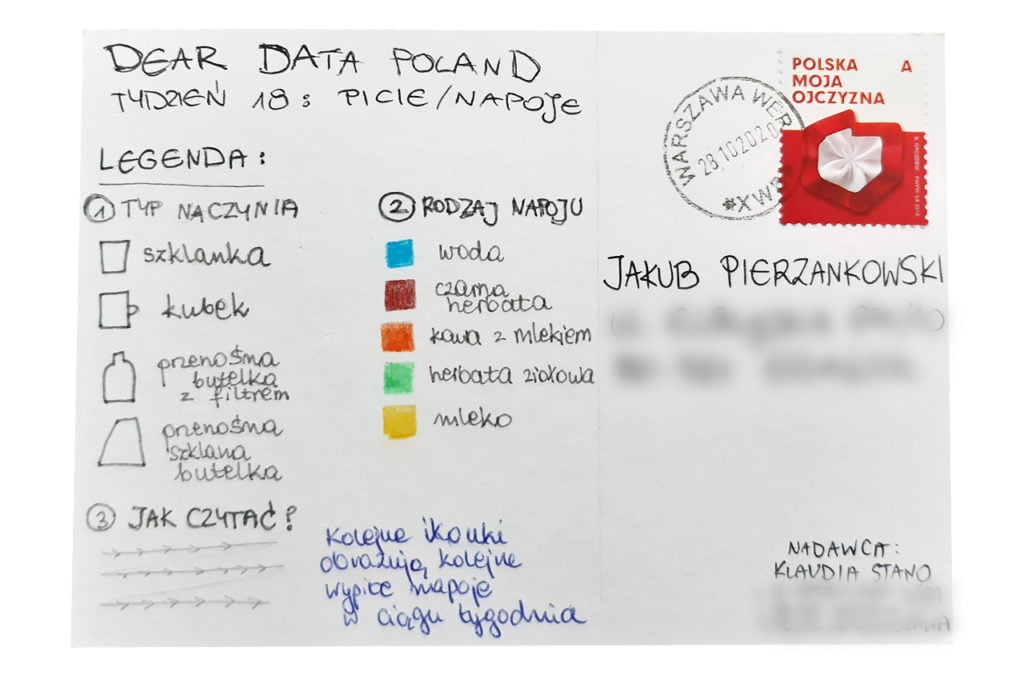 DEAR DATA POLAND
TYDZIEŃ 18: PICIE/NAPOJE
LEGENDA:
1 TYP NACZYNIA
szklanka
kubek
przenośna
butelka
z filtrem
przenośna
szklana
butelka
2 RODZAJ NAPOJU
woda
czarna
herbata
kawa z mlekiem
herbata ziołowa
mleko
3 JAK CZYTAĆ?
Kolejne ikonki
obrazują kolejne
wypite napoje
w ciągu tygodnia
WARSZAWA WER
28.102020
*XWP
POLSKA A
MOJA
OJCZYZNA
JAKUB PIERZANKOWSKI
NADAWCA:
KLAUDIA STANO